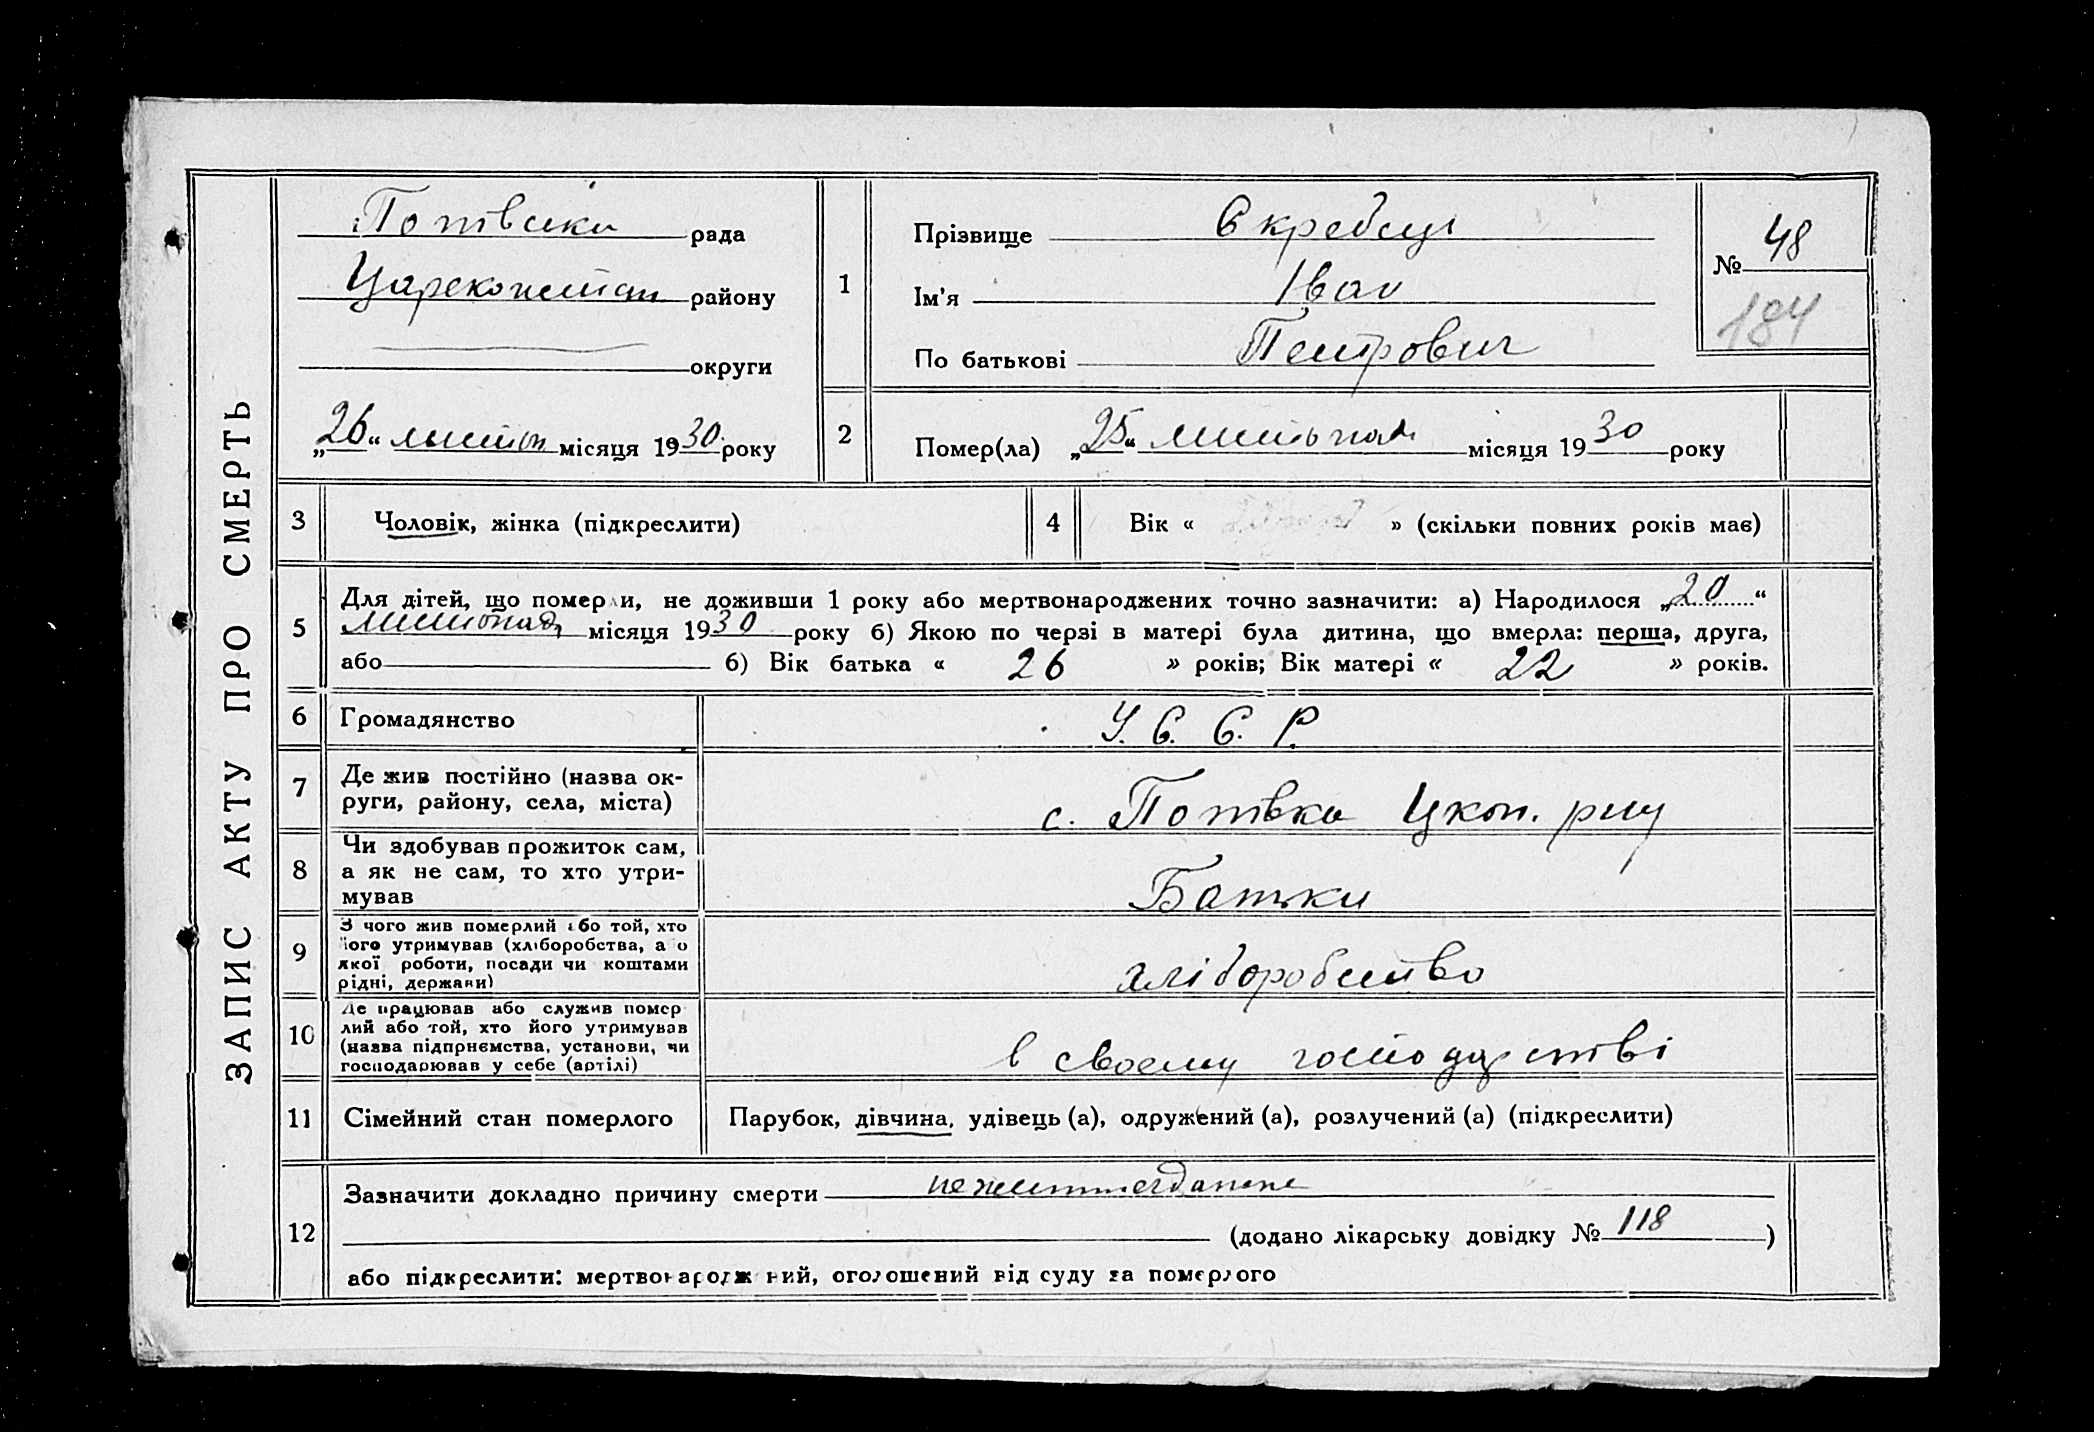 ЗАПИС АКТУ ПРО СМЕРТЬ
Потівська рада
района
округи
„26“ листоп місяця 1930 року
1
Прізвище Скребець
Ім'я Іван
По батькові Петрович
№ 48
184
2
Помер(ла) „25“ листопад місяця 1930 року
3
Чоловік, жінка (підкреслити)
4
Вік « » (скільки повних років має)
5
Для дітей, що померли, не доживши 1 року або мертвонароджених точно зазначити: а) Народилося „20“
листопада місяця 1930 року б) Якою по черзі в матері була дитина, що вмерла: перша, друга,
або б) Вік батька « 26 » років; Вік матері « 22 » років.
6
Громадянство
У.С.С.Р.
7
Де жив постійно (назва ок-
руги, району, села, міста)
с. Потівка Цкоп. р-ну
8
Чи здобував прожиток сам,
а як не сам, то хто утри-
мував
Батьки
9
З чого жив померлий або той, хто
його утримував (хліборобства, або
якої роботи, посади чи коштами
рідні, держави)
хліборобство
10
Де працював або служив помер
лий або той, хто його утримував
(назва підприємства, установи, чи
господарював у себе (артілі)
в своему господарстві
11
Сімейний стан померлого
Парубок, дівчина, удівець (а), одружений (а), розлучений (а) (підкреслити)
12
Зазначити докладно причину смерти нежиттєздатне
(додано лікарську довідку № 118 )
або підкреслити: мертвонароджений, оголошений від суду за померлого